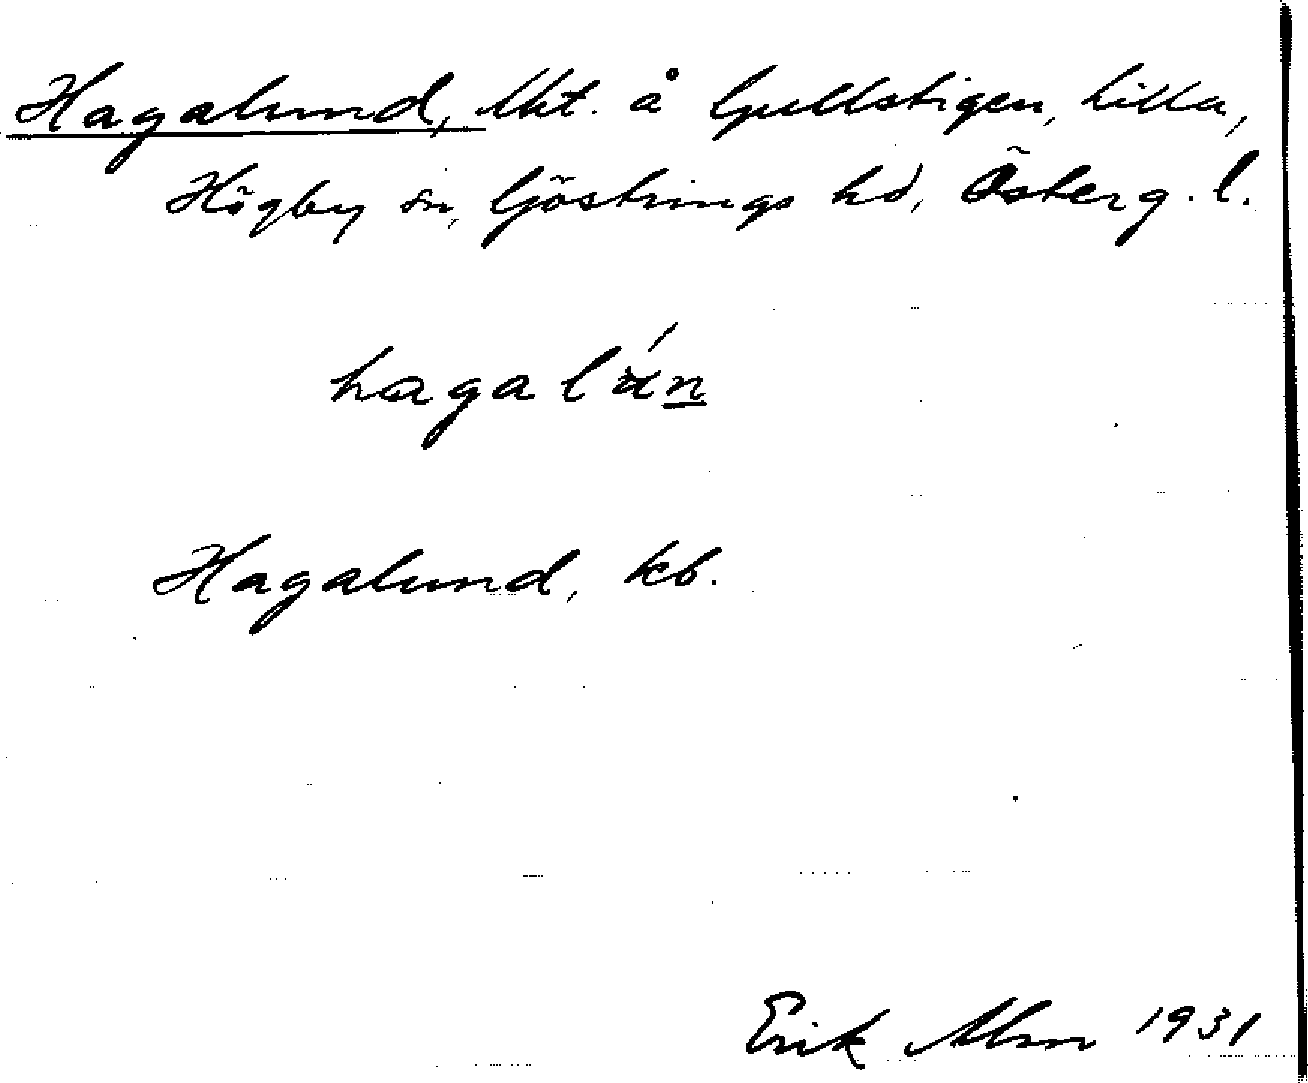 Hagalund, lht. å Gullstigen, Lilla,
Högby sn, Göstrings hd, Österg. l.
hagalún
Hagalund, kb.
Erik Alm 1931